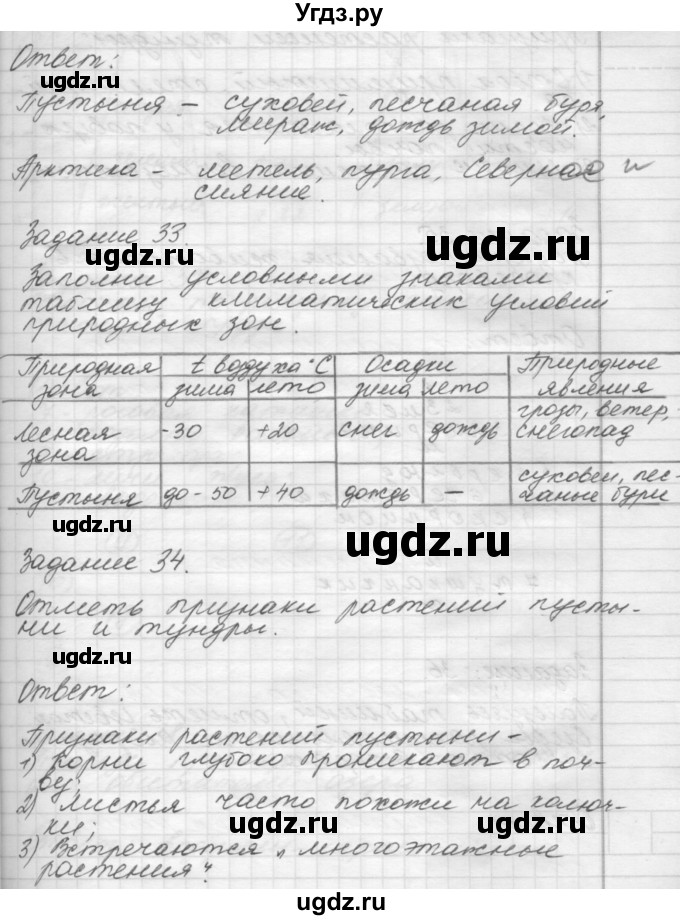 Угдз.ру
Ответ:
ugdz.ru
ugdz.ru
ugdz.ru
Пустыня – суховей, песчаная буря,
мираж, дождь зимой.
Арктика – метель, пурга, Северное
сияние.
Задание 33.
ugdz.ru
ugdz.ru
Заполни условными знаками
таблицу климатических условий
природных зон.
ugdz.ru
Природная зона | t воздуха °C | Осадки | Природные явления
зима | лето | зима | лето
Лесная зона | -30 | +20 | снег | дождь | грозы, ветер, снегопад
ugdz.ru
Пустыня | до -50 | +40 | дождь | — | суховеи, песчаные бури
Задание 34.
ugdz.ru
ugdz.ru
Отметь признаки растений пусты-
ни и тундры.
ugdz.ru
Ответ:
ugdz.ru
Признаки растений пустыни –
1) Корни глубоко проникают в поч-
ву;
2) Листья часто похожи на колюч-
ки;
ugdz.ru
ugdz.ru
3) Встречаются „многоэтажные
растения“.
ugdz.ru